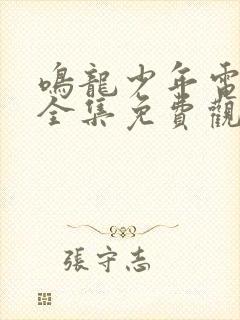 鳴龍少年電
全集免費觀
張守志